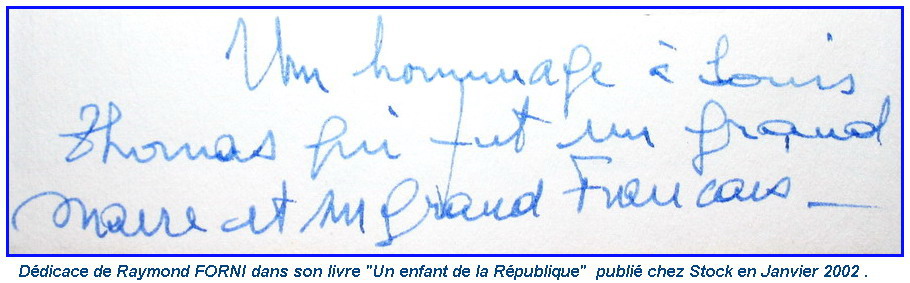 Un hommage à Louis
Thomas qui fut un grand
maire et un grand Francais _
Dédicace de Raymond FORNI dans son livre "Un enfant de la République" publié chez Stock en Janvier 2002 .